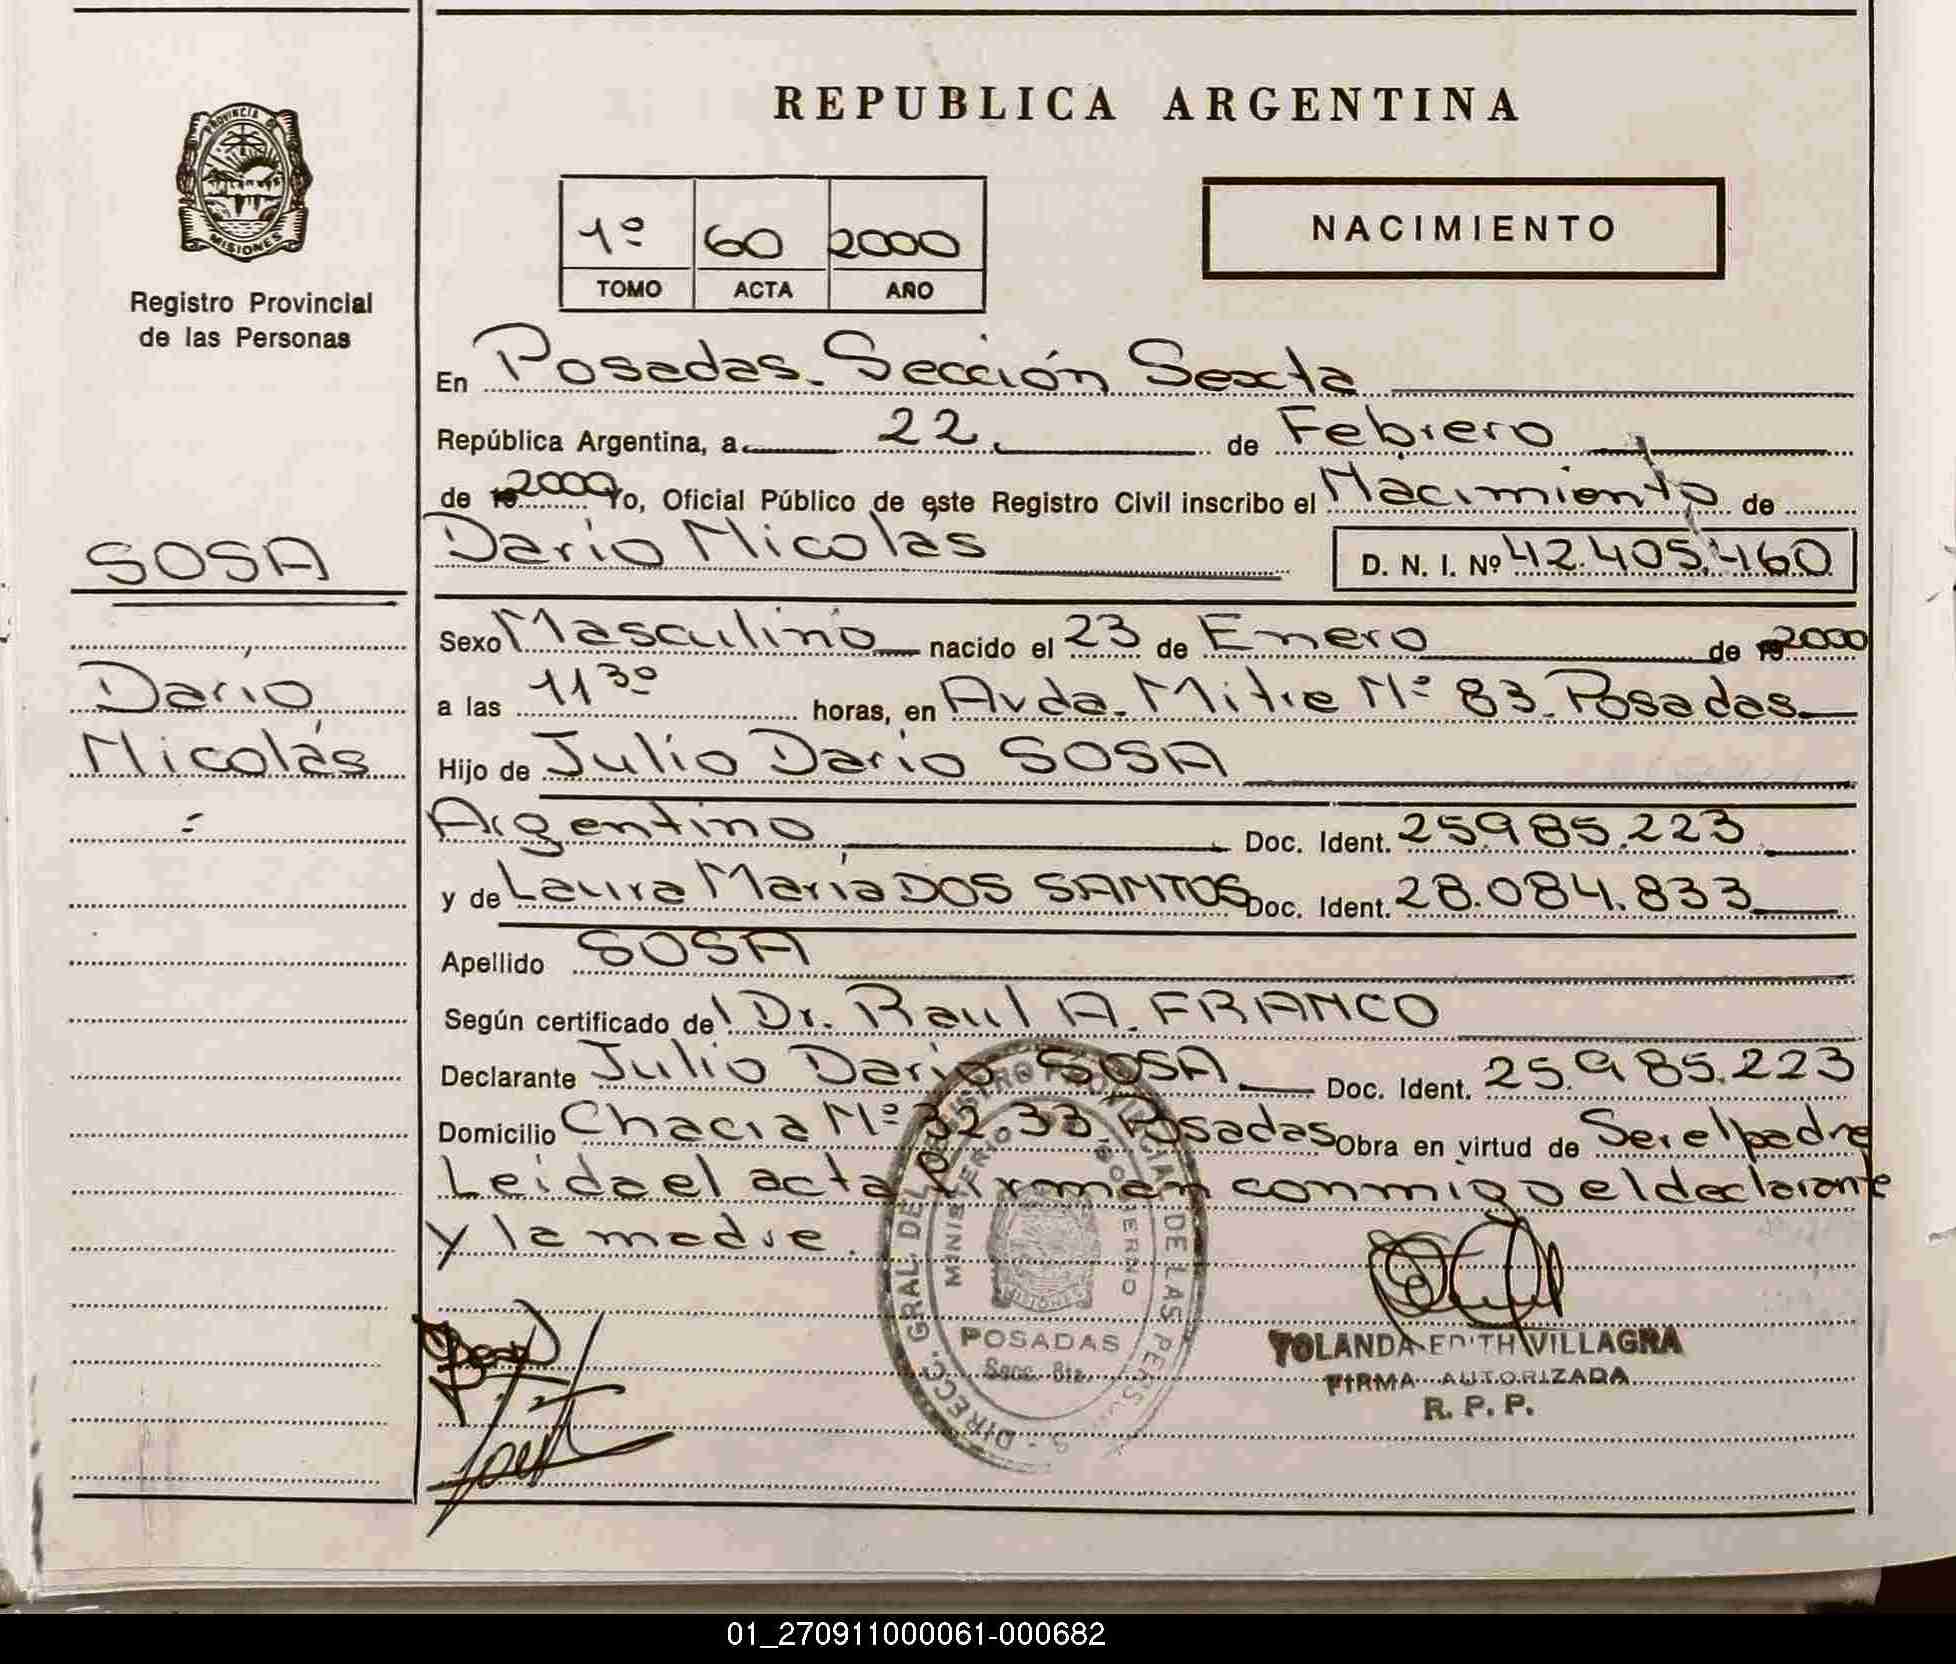 REPUBLICA ARGENTINA
PROVINCIA DE
MISIONES
Registro Provincial
de las Personas
1º 60 2000
TOMO ACTA AÑO
NACIMIENTO
En Posadas. Sección Sexta
República Argentina, a 22 de Febrero
de 2000 Yo, Oficial Público de este Registro Civil inscribo el Nacimiento de
Darío Nicolás
D. N. I. Nº 42.405.460
SOSA
Darío
Nicolás
Sexo Masculino nacido el 23 de Enero de 2000
a las 11 30 horas, en Avda. Mitre Nº 83. Posadas
Hijo de Julio Darío SOSA
Argentino Doc. Ident. 25.985.223
y de Laura María DOS SANTOS Doc. Ident. 28.084.833
Apellido SOSA
Según certificado del Dr. Raul A. FRANCO
Declarante Julio Darío SOSA Doc. Ident. 25.985.223
Domicilio Chacra Nº 32.33. Posadas Obra en virtud de Ser el padre
Leida el acta firman conmigo el declarante
y la madre.
MINISTERIO GOBIERNO
POSADAS
YOLANDA EDITH VILLAGRA
FIRMA AUTORIZADA
R. P. P.
01_270911000061-000682